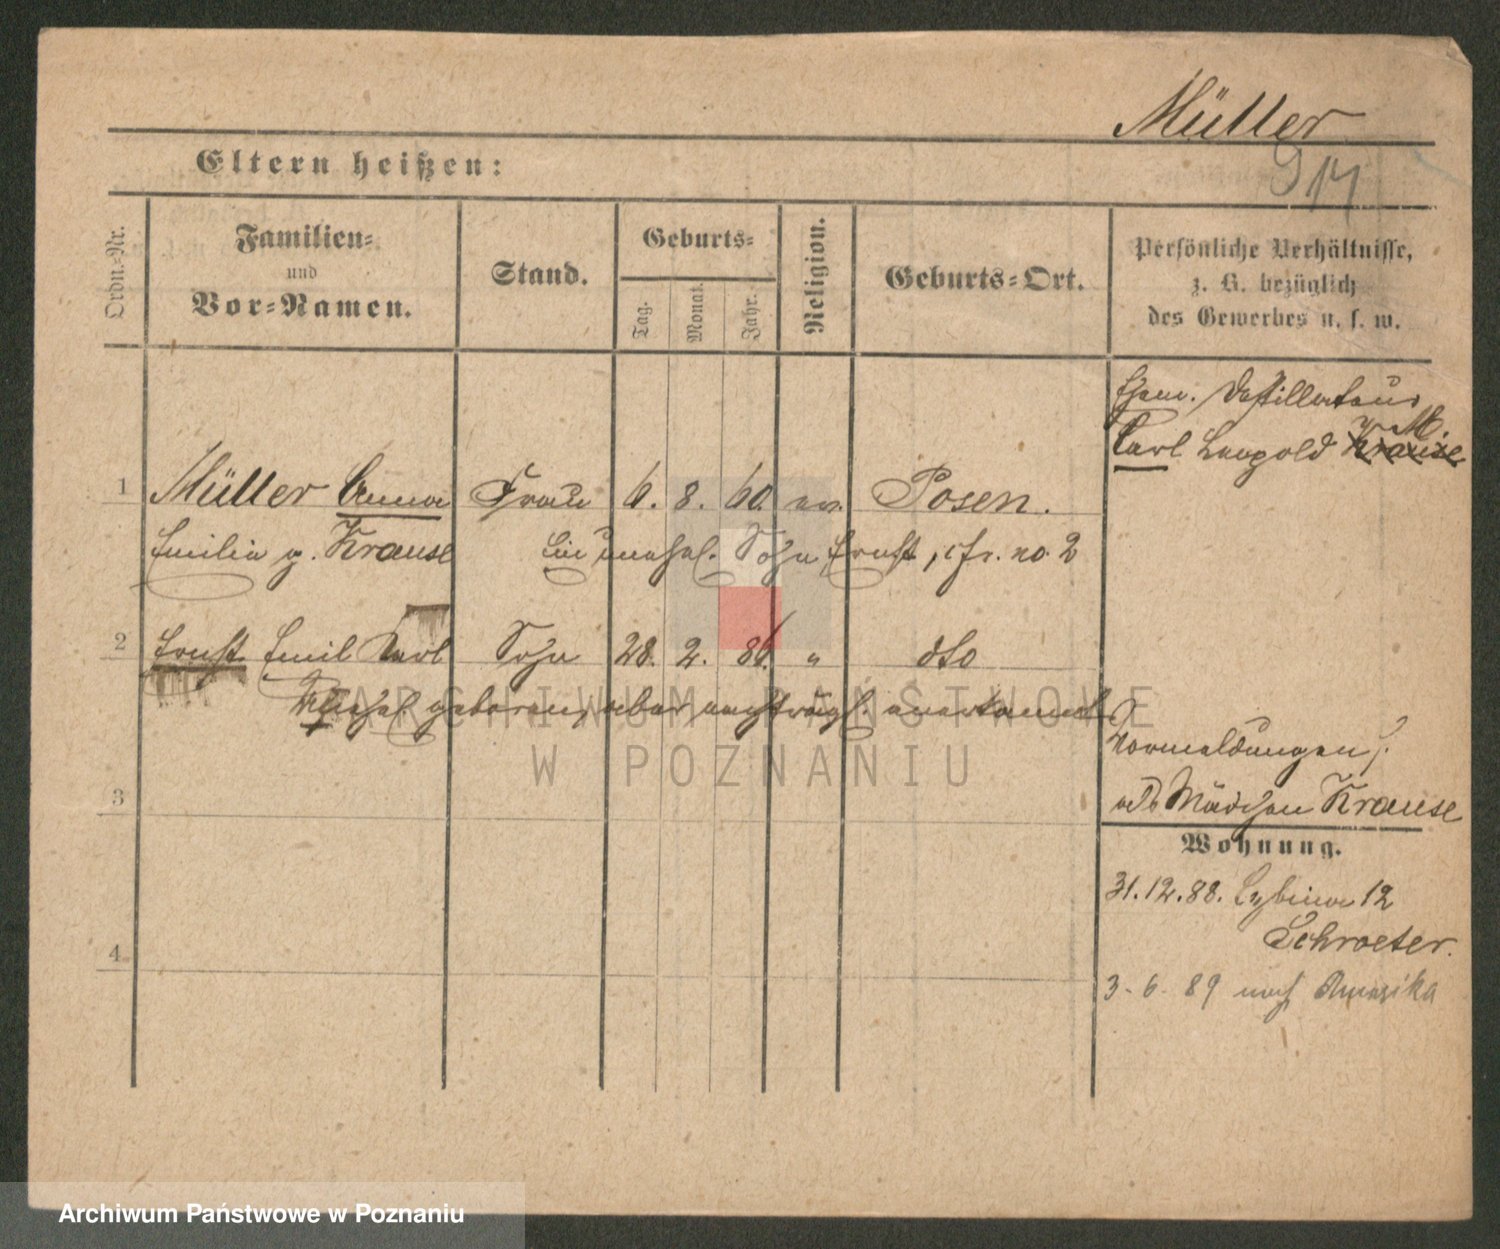 Müller
Eltern heißen:
Ordn.-Nr.
Familien-
und
Vor-Namen.
Stand.
Geburts-
Tag.
Monat.
Jahr.
Religion.
Geburts-Ort.
Persönliche Verhältnisse,
z. B. bezüglich
des Gewerbes u. s. w.
Ehem. Destillateur
Carl Leopold Krause M.
1 Müller Anna Frau 6. 8. 60. ev. Posen.
Emilie g. Krause Ein unehel. Sohn Ernst, cfr. no. 2
2 Ernst Emil Carl Sohn 28. 2. 86. " dto
Unehel. geboren, aber nachträgl. anerkannt
Vormeldungen f.
als Mädchen Krause
3
Wohnung.
31.12.88. Lybina 12
Schroeter.
4
3. 6. 89 nach Amerika
ARCHIWUM PAŃSTWOWE
W POZNANIU
Archiwum Państwowe w Poznaniu